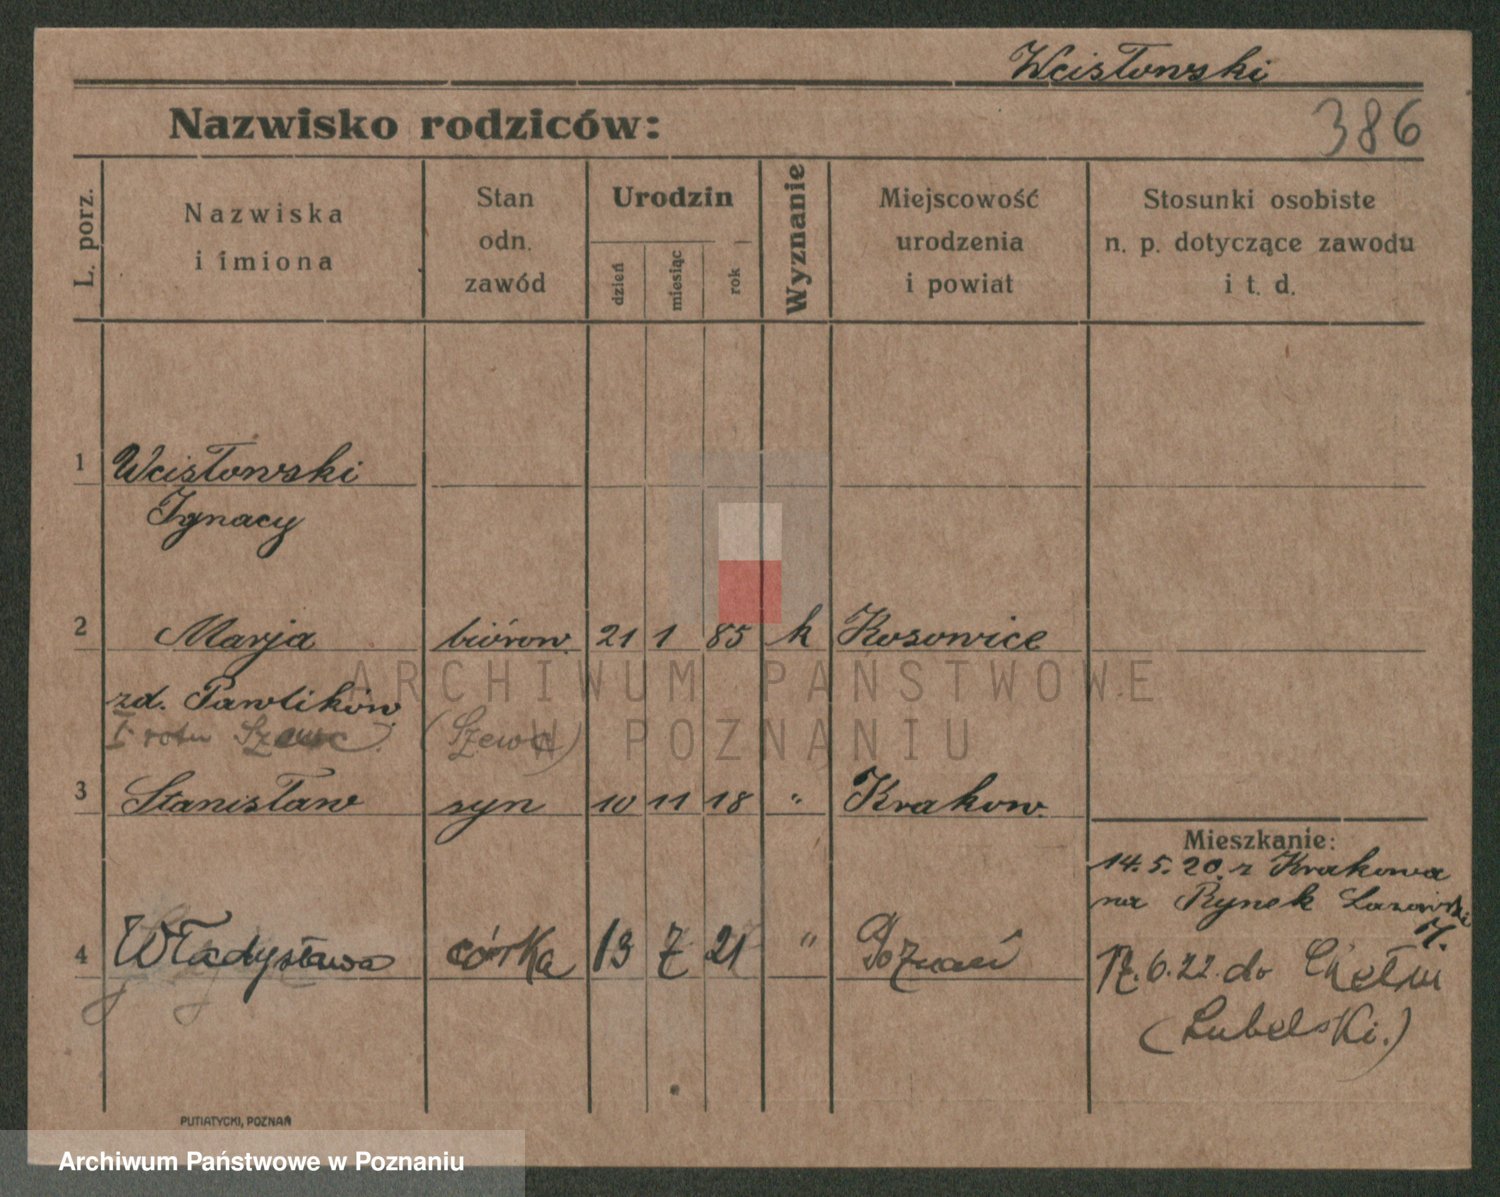 Wcisłowski
Nazwisko rodziców:
386
L. porz.
Nazwiska
i imiona
Stan
odn.
zawód
Urodzin
dzień
miesiąc
rok
Wyznanie
Miejscowość
urodzenia
i powiat
Stosunki osobiste
n. p. dotyczące zawodu
i t. d.
1 Wcisłowski
Ignacy
2 Marja biórow. 21 1 85 k Kosowice
zd. Pawlików
I voto Szewc (Szewc)
3 Stanisław syn 10 11 18 " Krakow.
Mieszkanie:
14.5.20. z Krakowa
na Rynek Lazarski
4 Władysława córka 13 7 21 " Poznań
17.6.22 do Chełm
(Lubelski.)
PUTIATYCKI, POZNAŃ
ARCHIWUM PAŃSTWOWE
W POZNANIU
Archiwum Państwowe w Poznaniu